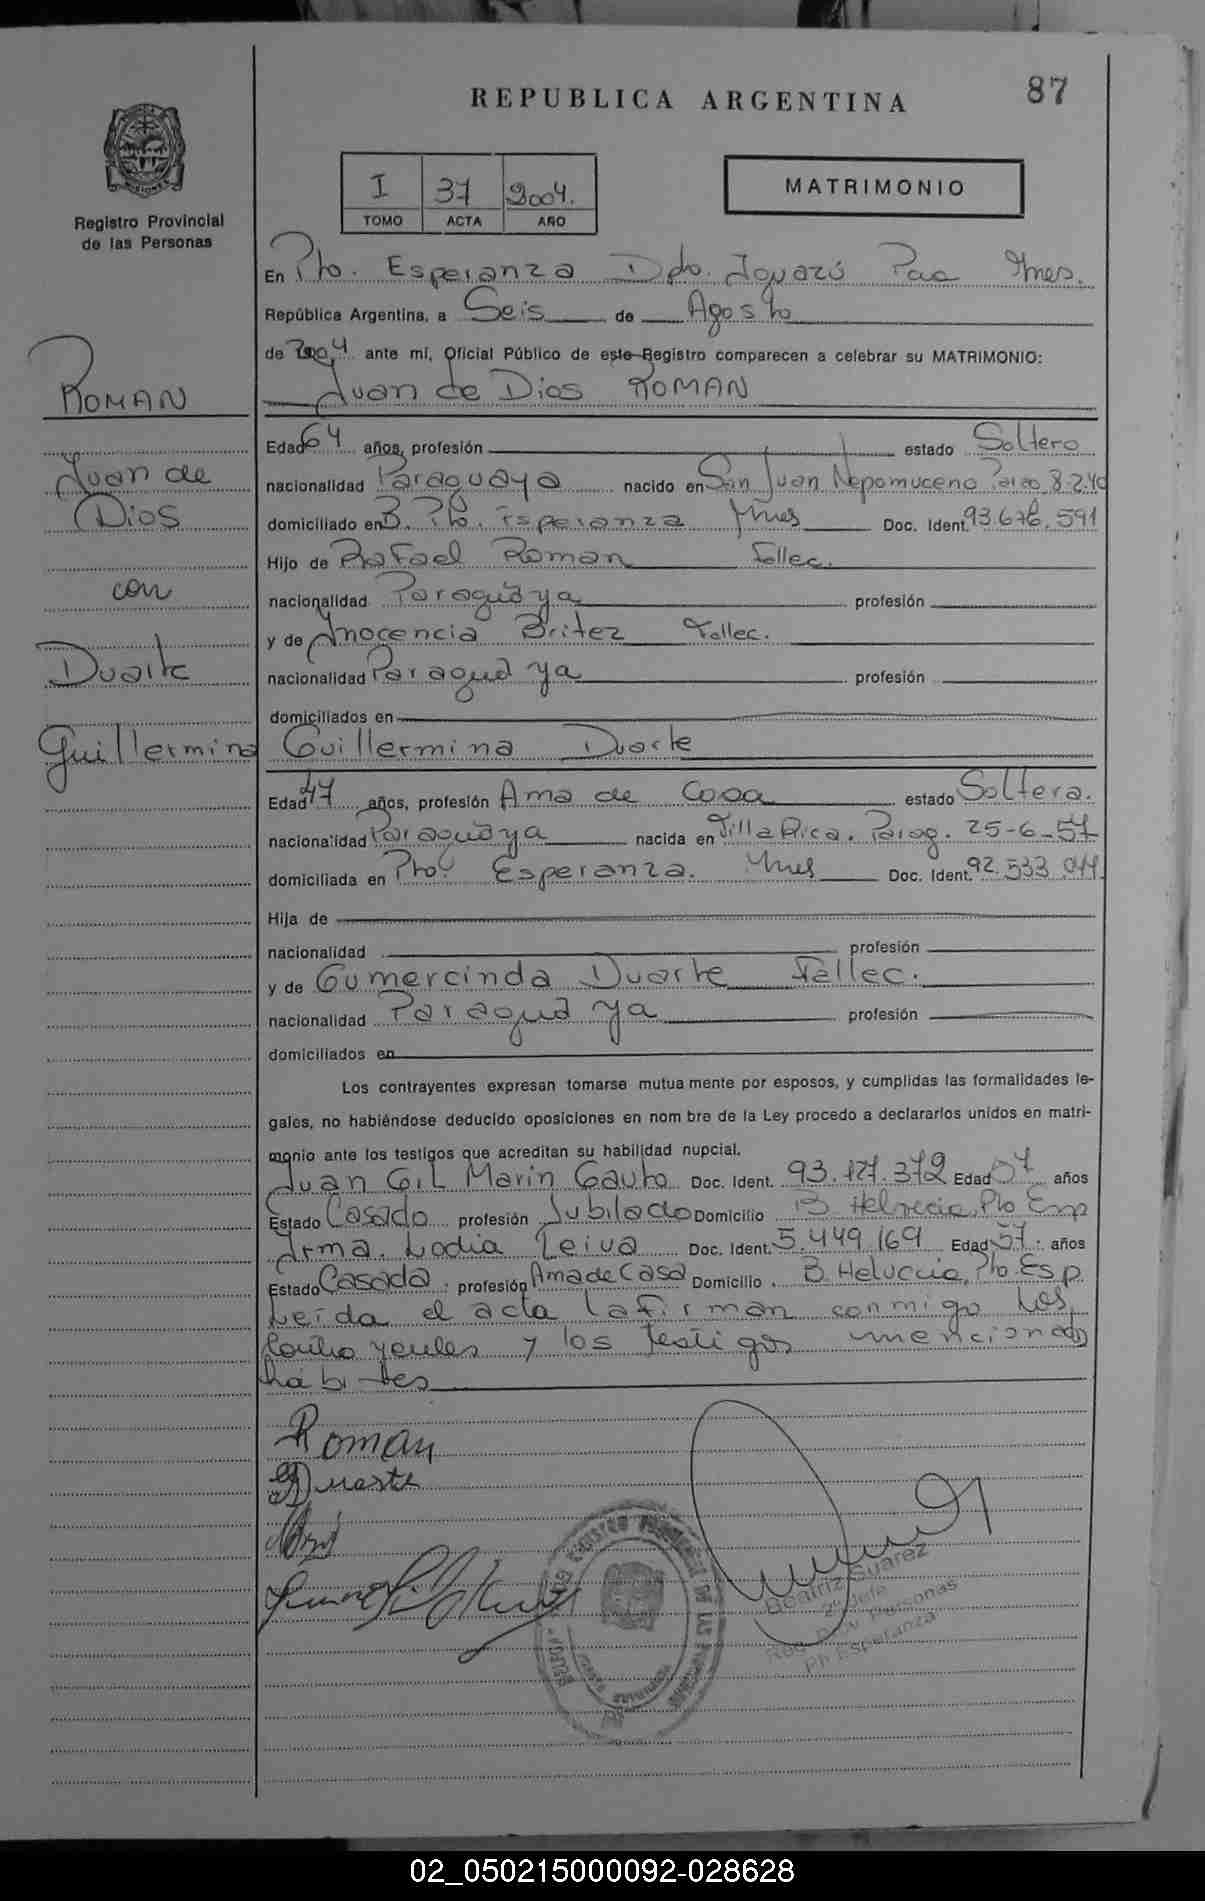 87
REPUBLICA ARGENTINA
MISIONES
Registro Provincial
de las Personas
I 37 2004.
TOMO ACTA AÑO
MATRIMONIO
En Pto. Esperanza Dpto. Iguazú Pcia Mnes.
República Argentina, a Seis de Agosto
de 2004 ante mí, Oficial Público de este Registro comparecen a celebrar su MATRIMONIO:
Juan de Dios ROMAN
ROMAN
Juan de
Dios
con
Duarte
Guillermina
Edad 64 años, profesión estado Soltero
nacionalidad Paraguaya nacido en San Juan Nepomuceno 8-2-40
domiciliado en B. Pto. Esperanza Mnes Doc. Ident. 93.676.591
Hijo de Rafael Roman Fallec.
nacionalidad Paraguaya profesión
y de Inocencia Britez Fallec.
nacionalidad Paraguaya profesión
domiciliados en
Guillermina Duarte
Edad 47 años, profesión Ama de Casa estado Soltera.
nacionalidad Paraguaya nacida en Villa Rica. Parag. 25-6-57
domiciliada en Pto. Esperanza. Mnes Doc. Ident. 92.533.044
Hija de
nacionalidad profesión
y de Gumercinda Duarte Fallec.
nacionalidad Paraguaya profesión
domiciliados en
Los contrayentes expresan tomarse mutua mente por esposos, y cumplidas las formalidades le-
gales, no habiéndose deducido oposiciones en nom bre de la Ley procedo a declararlos unidos en matri-
monio ante los testigos que acreditan su habilidad nupcial.
Juan Gil Marin Gauto Doc. Ident. 93.127.372 Edad 57 años
Estado Casado profesión Jubilado Domicilio B. Helvecia, Pto Esp
Irma Ladia Leiva Doc. Ident. 5.449.169 Edad 57 años
Estado Casada profesión Ama de Casa Domicilio B. Helvecia, Pto Esp
Leída el acta la firman conmigo los
y los testigos mencionados
hábiles
Roman
Duarte
Beatriz Suarez
2º Jefe
Reg. Prov. Personas
Pto Esperanza
02_050215000092-028628